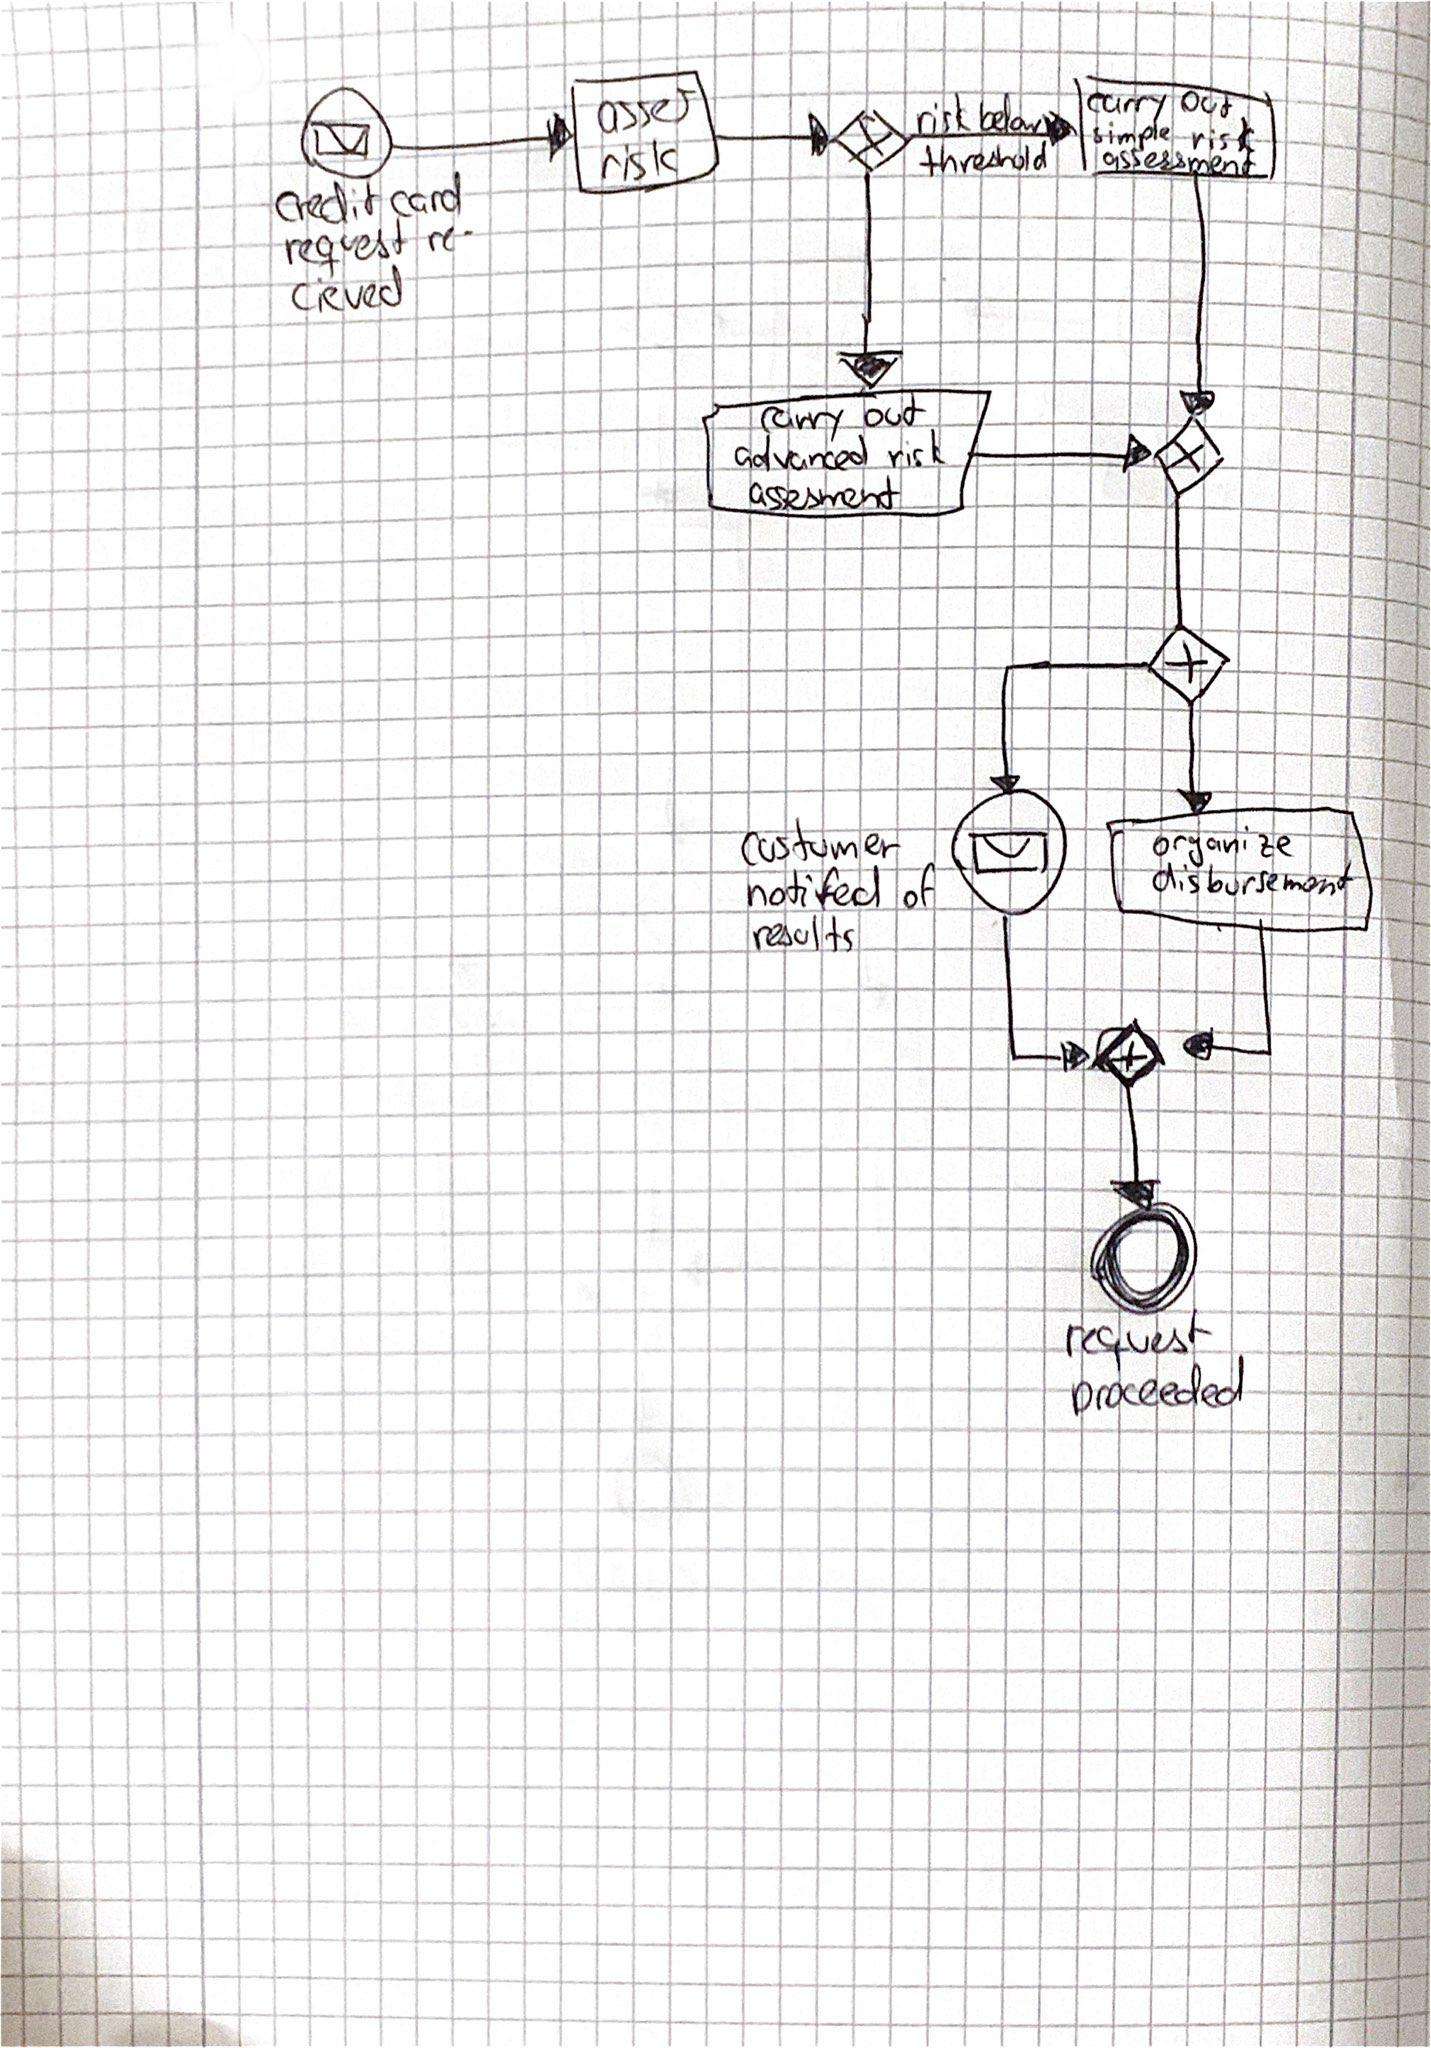 credit card
request re-
cieved
asses
risk
risk below
threshold
carry out
simple risk
assessment
carry out
advanced risk
assesment
costumer
notifed of
results
organize
disbursement
request
proceeded